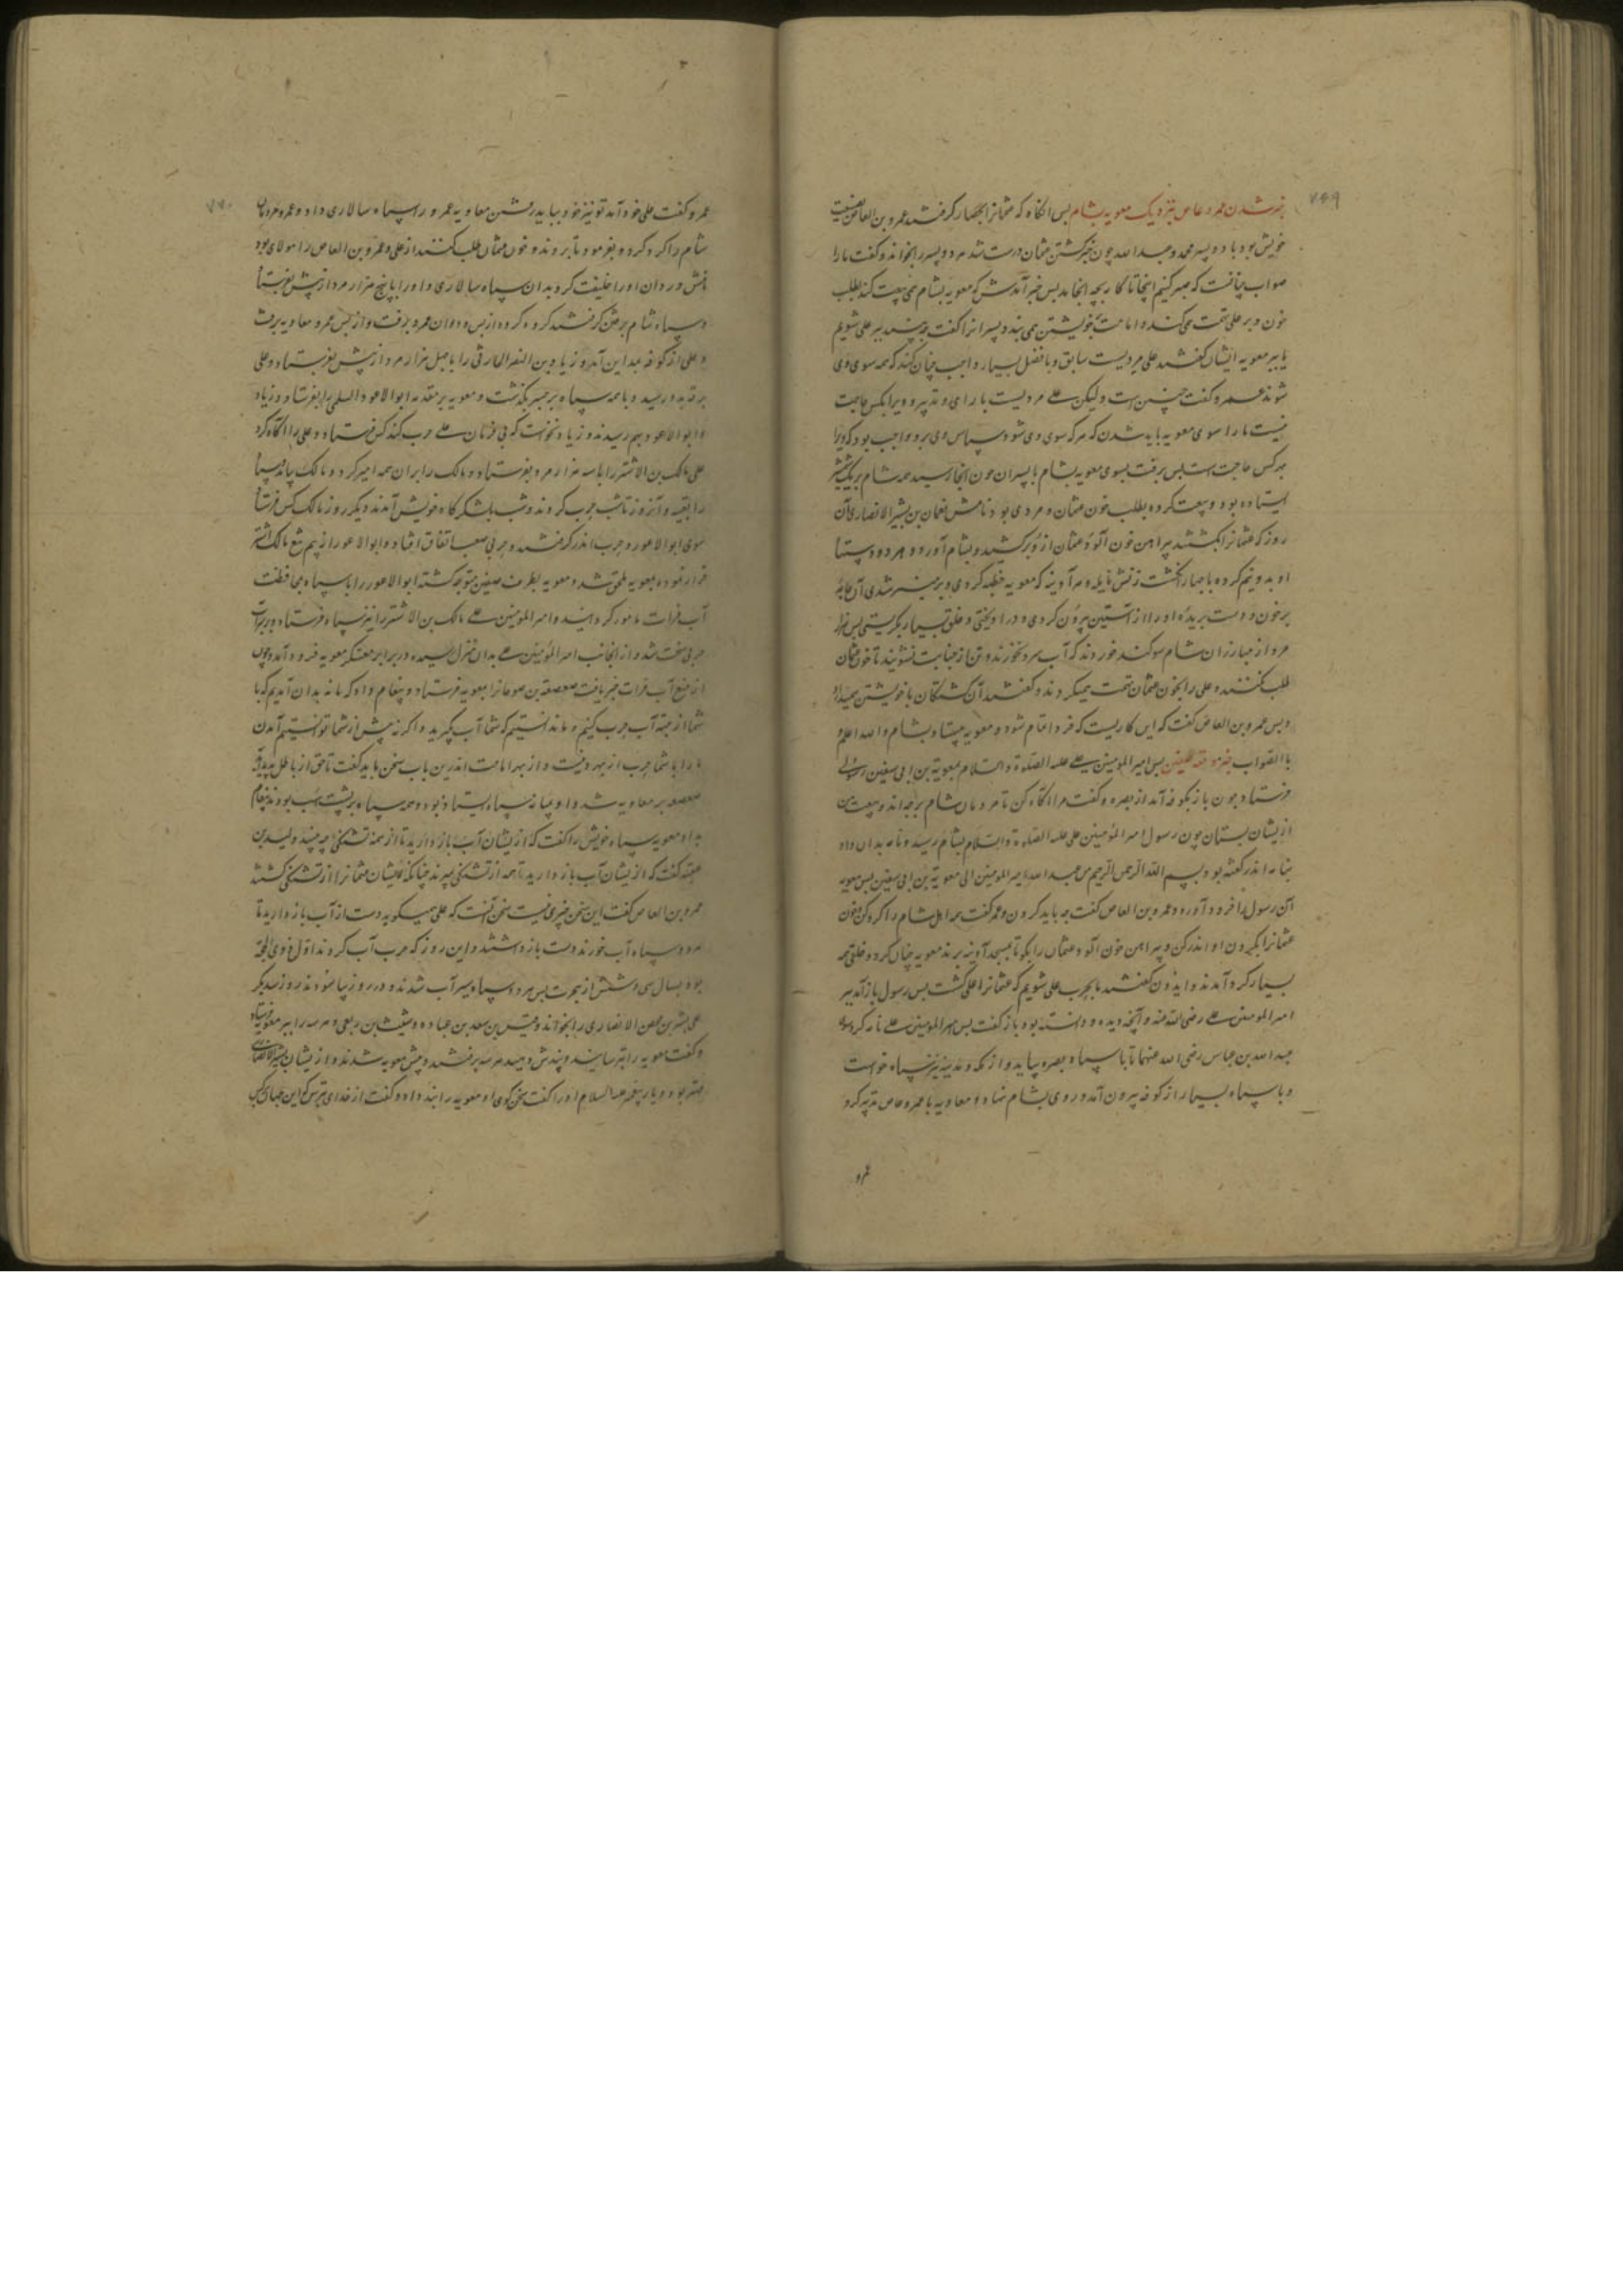 ۷۶۹
خبر شدن عمرو عاص بنزدیک معویه بشام پس انگاه که عثمانرا بحصار گرفتند عمرو بن العاص بضیعت
خویش بود با دو پسر محمد و عبد الله چون خبر کشتن عثمان درست شد هر دو پسر را بخواند و گفت ما را
صواب چنانست که صبر کنیم اینجا تا کار بچه انجامد پس خبر آمدش که معویه بشام همی بیعت کند بطلب
خون و بر علی تهمت می کند و امامت بخویشتن همی بیند و پسرانرا گفت چه بینید بر علی شویم
یا بر معویه ایشان گفتند علی مردیست سابق و با فضل بسیار واجب چنان کند که همه سوی وی
شوند عمرو گفت چنین است ولیکن علی مردیست با رای و تدبیر و ویرا بکس حاجت
نیست ما را سوی معویه باید شدن که هر که سوی وی شود سپاس وی برو واجب بود که ویرا
بهر کس حاجت است پس برفت بسوی معویه بشام با پسران چون آنجا رسید همه شام بر یک
ایستاده بود و بیعت کرده بطلب خون عثمان و مردی بود نامش نعمان بن بشیر الانصاری آن
روز که عثمانرا بکشتند پیراهن خون آلود عثمان ازو برکشید و بشام آورد و هر دو دستها
او بدو نیم کرده با چهار انگشت زنش نایله و هر آدینه که معویه خطبه کردی و بر منبر شدی آن جامه
بر خون و دست بریده او را از آستین بیرون کردی و در آویختی و خلق بسیار بگریستی پس هزار
مرد از مبارزان شام سوگند خوردند که آب سرد نخورند و تن از جنابت نشویند تا خون عثمان
طلب نکنند و علی را بخون عثمان تهمت میکردند و گفتند آن کشندگان با خویشتن میدارد
و پس عمرو بن العاص گفت که این کاریست که فردا تمام شود و معویه بیستاد بشام و الله اعلم
بالصواب خبر وقعه صفین پس امیر المومنین علی علیه الصلوة و السلام بمعویة بن ابی سفین رسولی
فرستاد چون باز بکوفه آمد از بصره و گفت مرا آگاه کن تا مردمان شام بر چه اند و بیعت من
ازیشان بستان چون رسول امیر المومنین علی علیه الصلوة و السلام بشام رسید و نامه بدان داد
بنامه اندر گفته بود بسم الله الرحمن الرحیم من عبد الله امیر المومنین الی معویة بن ابی سفین پس معویه
آن رسول را فرود آورد و عمرو بن العاص گفت چه باید کردن و عمر گفت همه اهل شام را گرد کن و خون
عثمانرا بگردن او اندر کن و پیراهن خون آلود عثمان را بگو تا بمسجد آدینه برند معویه چنان کرد و خلقی همه
بسیار گرد آمدند و ایدون گفتند ما بحرب علی شویم که عثمانرا علی کشت پس رسول باز آمد بر
امیر المومنین علی رضی الله عنه و آنچه دیده و دانسته بود باز گفت پس امیر المومنین علی نامه کرد سوی
عبد الله بن عباس رضی الله عنهما تا با سپاه بصره بیاید و از مکه و مدینه نیز سپاه خواست
و با سپاه بسیار از کوفه بیرون آمد و روی بشام نهاد و معاویه با عمرو عاص تدبیر کرد
عمرو
۷۷۰
عمرو گفت علی خود آمد تو نیز خود بباید رفتن معاویه عمرو را سپاه سالاری داد و عمرو مردمان
شام را گرد کرد و بفرمود تا بروند و خون عثمان طلب کنند از علی و عمرو بن العاص را مولای بود
نامش وردان او را خلیفت کرد بدان سپاه سالاری و او را با پنج هزار مرد از پیش بفرستاد
و سپاه شام برفتن گرفتند گروه گروه از پس وردان عمرو برفت و از پس عمرو معاویه برفت
و علی از کوفه بمداین آمد و زیاد بن النضر الحارثی را با چهل هزار مرد از پیش بفرستاد و علی
برقه در رسید و با همه سپاه بر جسر بگذشت و معویه بر مقدمه ابو الاعود السلمی را بفرستاد و زیاد
و ابو الاعود بهم رسیدند و زیاد نخواست که بی فرمان علی حرب کند کس فرستاد و علی را آگاه کرد
علی مالک بن الاشتر را با سه هزار مرد بفرستاد و مالک را بر ایشان همه امیر کرد و مالک بیامد سپاه
را بتعبیه و آنروز تا شب حرب کردند و شب بلشکر گاه خویش آمدند دیگر روز مالک کس فرستاد
سوی ابو الاعور و حرب اندر گرفتند و حربی صعب اتفاق افتاد و ابو الاعور از بیم تیغ مالک اشتر
فرار نموده بمعویه ملحق شد و معویه بطرف صفین متوجه گشته ابو الاعور را با سپاه بمحافظت
آب فرات مامور گردانید و امیر المومنین علی مالک بن الاشتر را نیز سپاه فرستاد و بر سر آب
حربی سخت شد و از آنجانب امیر المومنین علی بدان منزل رسیده در برابر معسکر معویه فرود آمد و چون
از منع آب فرات خبر یافت صعصعة بن صوحانرا بمعویه فرستاد و پیغام داد که ما نه بدان آمدیم که با
شما از جهة آب حرب کنیم و ما ندانستیم که شما آب بگیرید و اگر نه پیش از شما توانستیم آمدن
ما را با شما حرب از بهر دینست و از بهر امامت اندرین باب سخن باید گفت تا حق از باطل پدید آید
صعصعه بر معاویه شد و او میانه سپاه ایستاده بود و همه سپاه بر پشت اسب بودند پیغام
بداد معویه سپاه خویش را گفت که ازیشان آب باز دارید تا از همه تشنگی چه بینید ولید بن
عقبه گفت که ازیشان آب باز دارید تا همه از تشنگی بمیرند چنانکه ایشان عثمانرا از تشنگی کشتند
عمرو بن العاص گفت این سخن چیزی نیست سخن آنست که علی میگوید دست از آب باز دارید تا
هر دو سپاه آب خورند دست باز داشتند و این روز که حرب آب کردند اول ذوی الحجه
بود بسال سی و شش از هجرت پس هر دو سپاه سیر آب شدند و دو روز بیاسودند روز سدیگر
علی بشیر بن محصن الانصاری را بخواند و قیس بن سعد بن عباده و شیث بن ربعی و هر سه را بر معویه فرستاد
و گفت معویه را بترسانید و پندش دهید هر سه برفتند و پیش معویه شدند و ازیشان بشیر الانصاری
مهتر بود و یار پیغمبر علیه السلام او را گفت سخن گوی او معویه را پند داد و گفت از خدای بترس که این جهان بکس